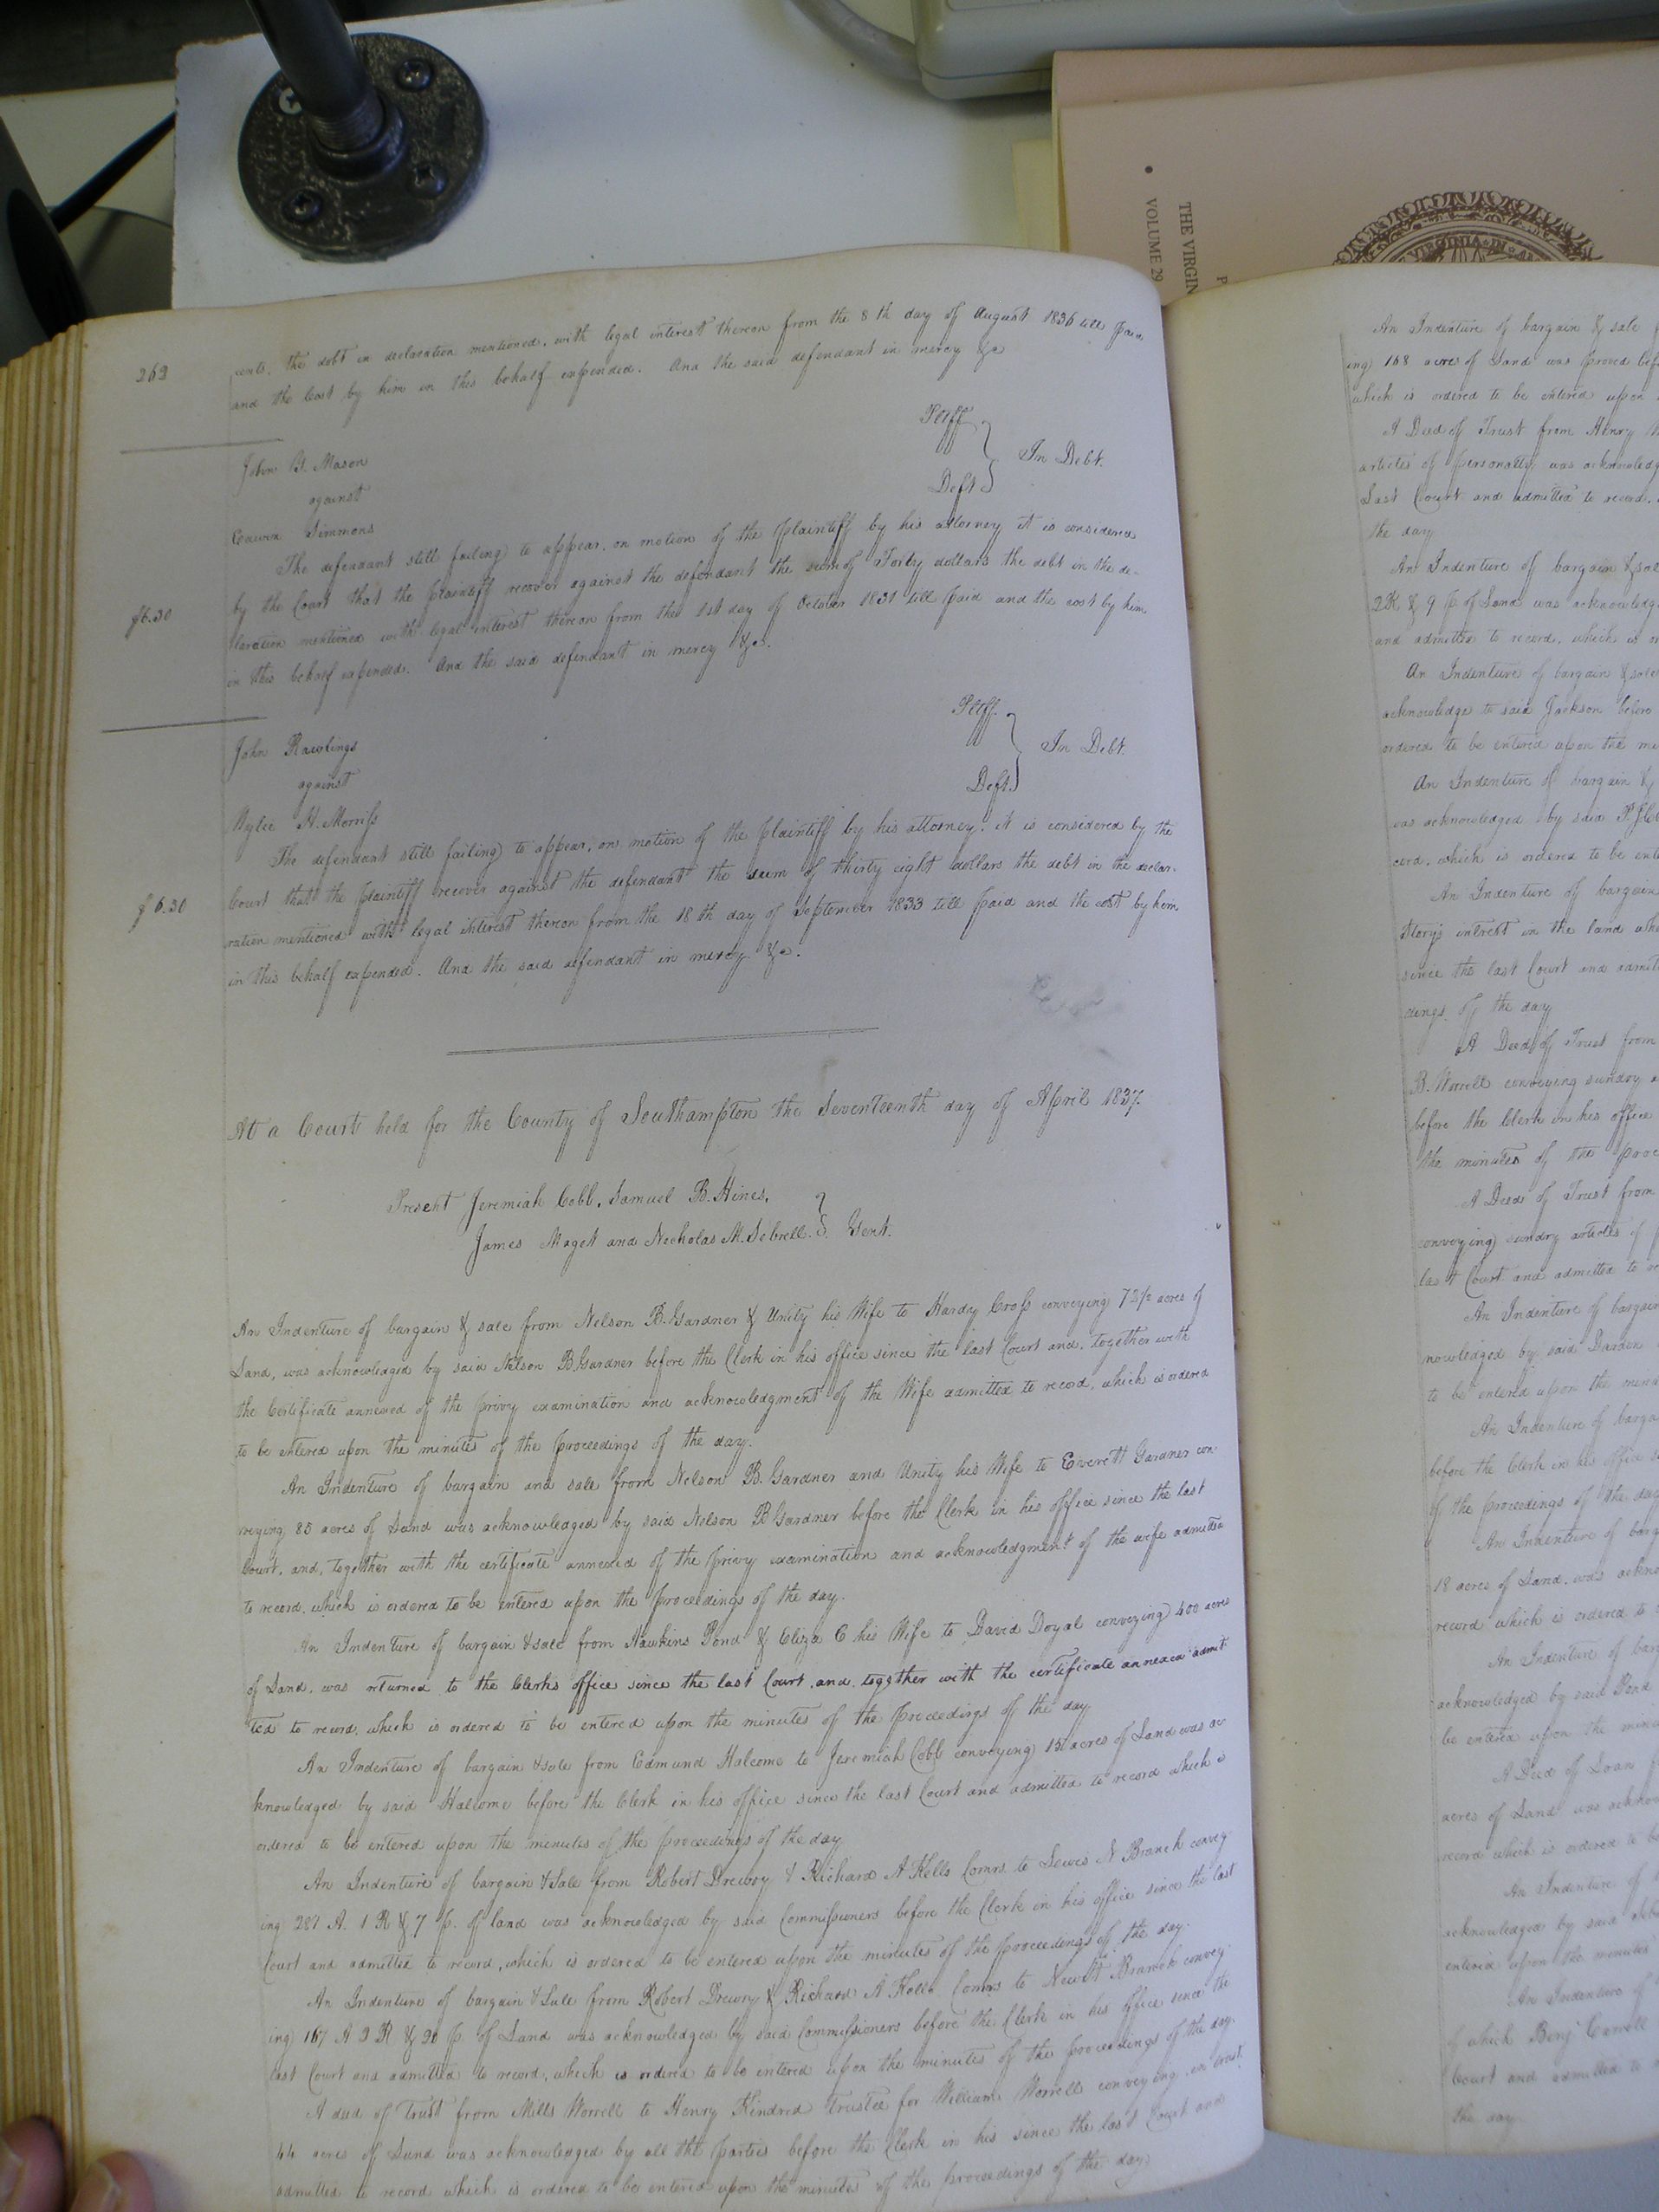 THE VIRGIN
VOLUME 29
VIRGINIA IN
262
cents, the debt in declaration mentioned, with legal interest thereon from the 8th day of August 1836 till paid
and the Cost by him in this behalf expended. And the said defendant in mercy &c
John Y. Mason Pltff
against In Debt.
Simmons Deft
The defendant still failing to appear, on motion of the plaintiff by his attorney it is considered
by the Court that the plaintiff recover against the defendant the sum of Forty dollars the debt in the de-
$6.30
claration mentioned with legal interest thereon from the 1st day of October 1831 till paid and the cost by him
in this behalf expended. And the said defendant in mercy &c.
John Rawlings Pltff.
against In Debt.
Wylie H. Morriss Deft.
The defendant still failing to appear, on motion of the plaintiff by his attorney. it is considered by the
Court that the plaintiff recover against the defendant the sum of thirty eight dollars the debt in the decla-
$6.30
ration mentioned with legal interest thereon from the 18th day of September 1833 till paid and the cost by him
in this behalf expended. And the said defendant in mercy &c.
At a Court held for the County of Southampton the Seventeenth day of April 1837.
Present Jeremiah Cobb, Samuel B. Hines,
James Maget and Nicholas M. Sebrell. Gent.
An Indenture of bargain & sale from Nelson B. Gardner & Unity his Wife to Hardy Cross conveying acres of
Land, was acknowledged by said Nelson B Gardner before the Clerk in his office since the last Court and, together with
the Certificate annexed of the privy examination and acknowledgment of the Wife admitted to record, which is ordered
to be entered upon the minutes of the proceedings of the day.
An Indenture of bargain and sale from Nelson B. Gardner and Unity his Wife to Everett Gardner con-
veying 85 acres of Land was acknowledged by said Nelson B Gardner before the Clerk in his office since the last
Court, and, together with the certificate annexed of the privy examination and acknowledgment of the wife admitted
to record, which is ordered to be entered upon the proceedings of the day.
An Indenture of bargain & sale from Hawkins Pond & Eliza C his Wife to David Doyal conveying 400 acres
of Land, was returned to the Clerks office since the last Court, and, together with the certificate annexed admit-
ted to record, which is ordered to be entered upon the minutes of the proceedings of the day
An Indenture of bargain & sale from Edmund Halcome to Jeremiah Cobb conveying acres of Land was ac
knowledged by said Halcome before the Clerk in his office since the last Court and admitted to record which is
ordered to be entered upon the minutes of the proceedings of the day
An Indenture of bargain & Sale from Robert Drewry & Richard A Kello Comrs. to Lewis N Branch convey-
ing 287 A. 1 R & 7 p. of land was acknowledged by said Commissioners before the Clerk in his office since the last
Court and admitted to record, which is ordered to be entered upon the minutes of the proceedings of the day.
An Indenture of bargain & Sale from Robert Drewry & Richard A Kello Comrs to Newitt Branch convey-
ing 167 A 2 R & p. of Land was acknowledged by said Commissioners before the Clerk in his office since the
last Court and admitted to record, which is ordered to be entered upon the minutes of the proceedings of the day.
A deed of Trust from Mills Worrell to Henry Kindred Trustee for William Worrell conveying in trust
44 acres of Land was acknowledged by all the parties before the Clerk in his since the last Court and
admitted to record which is ordered to be entered upon the minutes of the proceedings of the day.
An Indenture of bargain & sale
ing 168 acres of Land was proved bef
which is ordered to be entered upon
A Deed of Trust from Henry
articles of personalty was acknowledg
Last Court and admitted to record,
the day
An Indenture of bargain & sal
2 R & 9 p. of Land was acknowledg
and admitted to record, which is or
An Indenture of bargain & sale
acknowledge to said Jackson before
ordered to be entered upon the mi
An Indenture of bargain &
was acknowledged by said
cord, which is ordered to be ente
An Indenture of bargain
Story's interest in the land
since the last Court and admit
dings of the day
A Deed of Trust from
B. Worrell conveying sundry
before the Clerk in his office
the minutes of the proce
A Deed of Trust from
conveying sundry articles of
last Court and admitted to
An Indenture of bargain
nowledged by said Darden
to be entered upon the minu
An Indenture of barga
before the Clerk in his office
of the proceedings of the day
An Indenture of barg
18 acres of Land, was ackno
record which is ordered to
An Indenture of bar
acknowledged by said Pond
be entered upon the minu
A Deed of Loan
acres of Land was acknow
record which is ordered to be
An Indenture of
acknowledged by said
entered upon the minutes
An Indenture of
of which Benj Carrell
Court and admitted to
the day